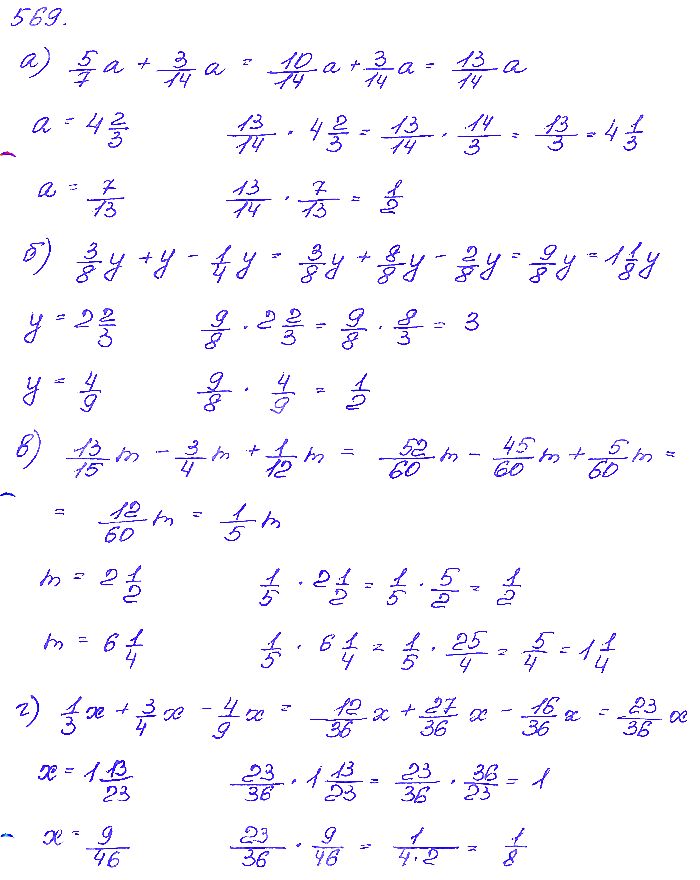 569.
а) 5/7 a + 3/14 a = 10/14 a + 3/14 a = 13/14 a
a = 4 2/3 13/14 · 4 2/3 = 13/14 · 14/3 = 13/3 = 4 1/3
a = 7/13 13/14 · 7/13 = 1/2
б) 3/8 y + y - 1/4 y = 3/8 y + 8/8 y - 2/8 y = 9/8 y = 1 1/8 y
y = 2 2/3 9/8 · 2 2/3 = 9/8 · 8/3 = 3
y = 4/9 9/8 · 4/9 = 1/2
в) 13/15 m - 3/4 m + 1/12 m = 52/60 m - 45/60 m + 5/60 m =
= 12/60 m = 1/5 m
m = 2 1/2 1/5 · 2 1/2 = 1/5 · 5/2 = 1/2
m = 6 1/4 1/5 · 6 1/4 = 1/5 · 25/4 = 5/4 = 1 1/4
г) 1/3 x + 3/4 x - 4/9 x = 12/36 x + 27/36 x - 16/36 x = 23/36 x
x = 1 13/23 23/36 · 1 13/23 = 23/36 · 36/23 = 1
x = 9/46 23/36 · 9/46 = 1/(4·2) = 1/8